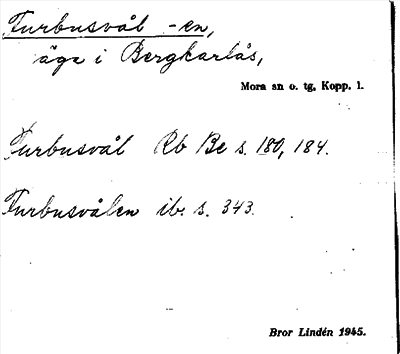 Furbusvål -en,
äga i Bergkarlås,
Mora sn o. tg. Kopp. l.
Furbusvål Rb Be s. 180, 184.
Furbusvålen ib. s. 343.
Bror Lindén 1945.